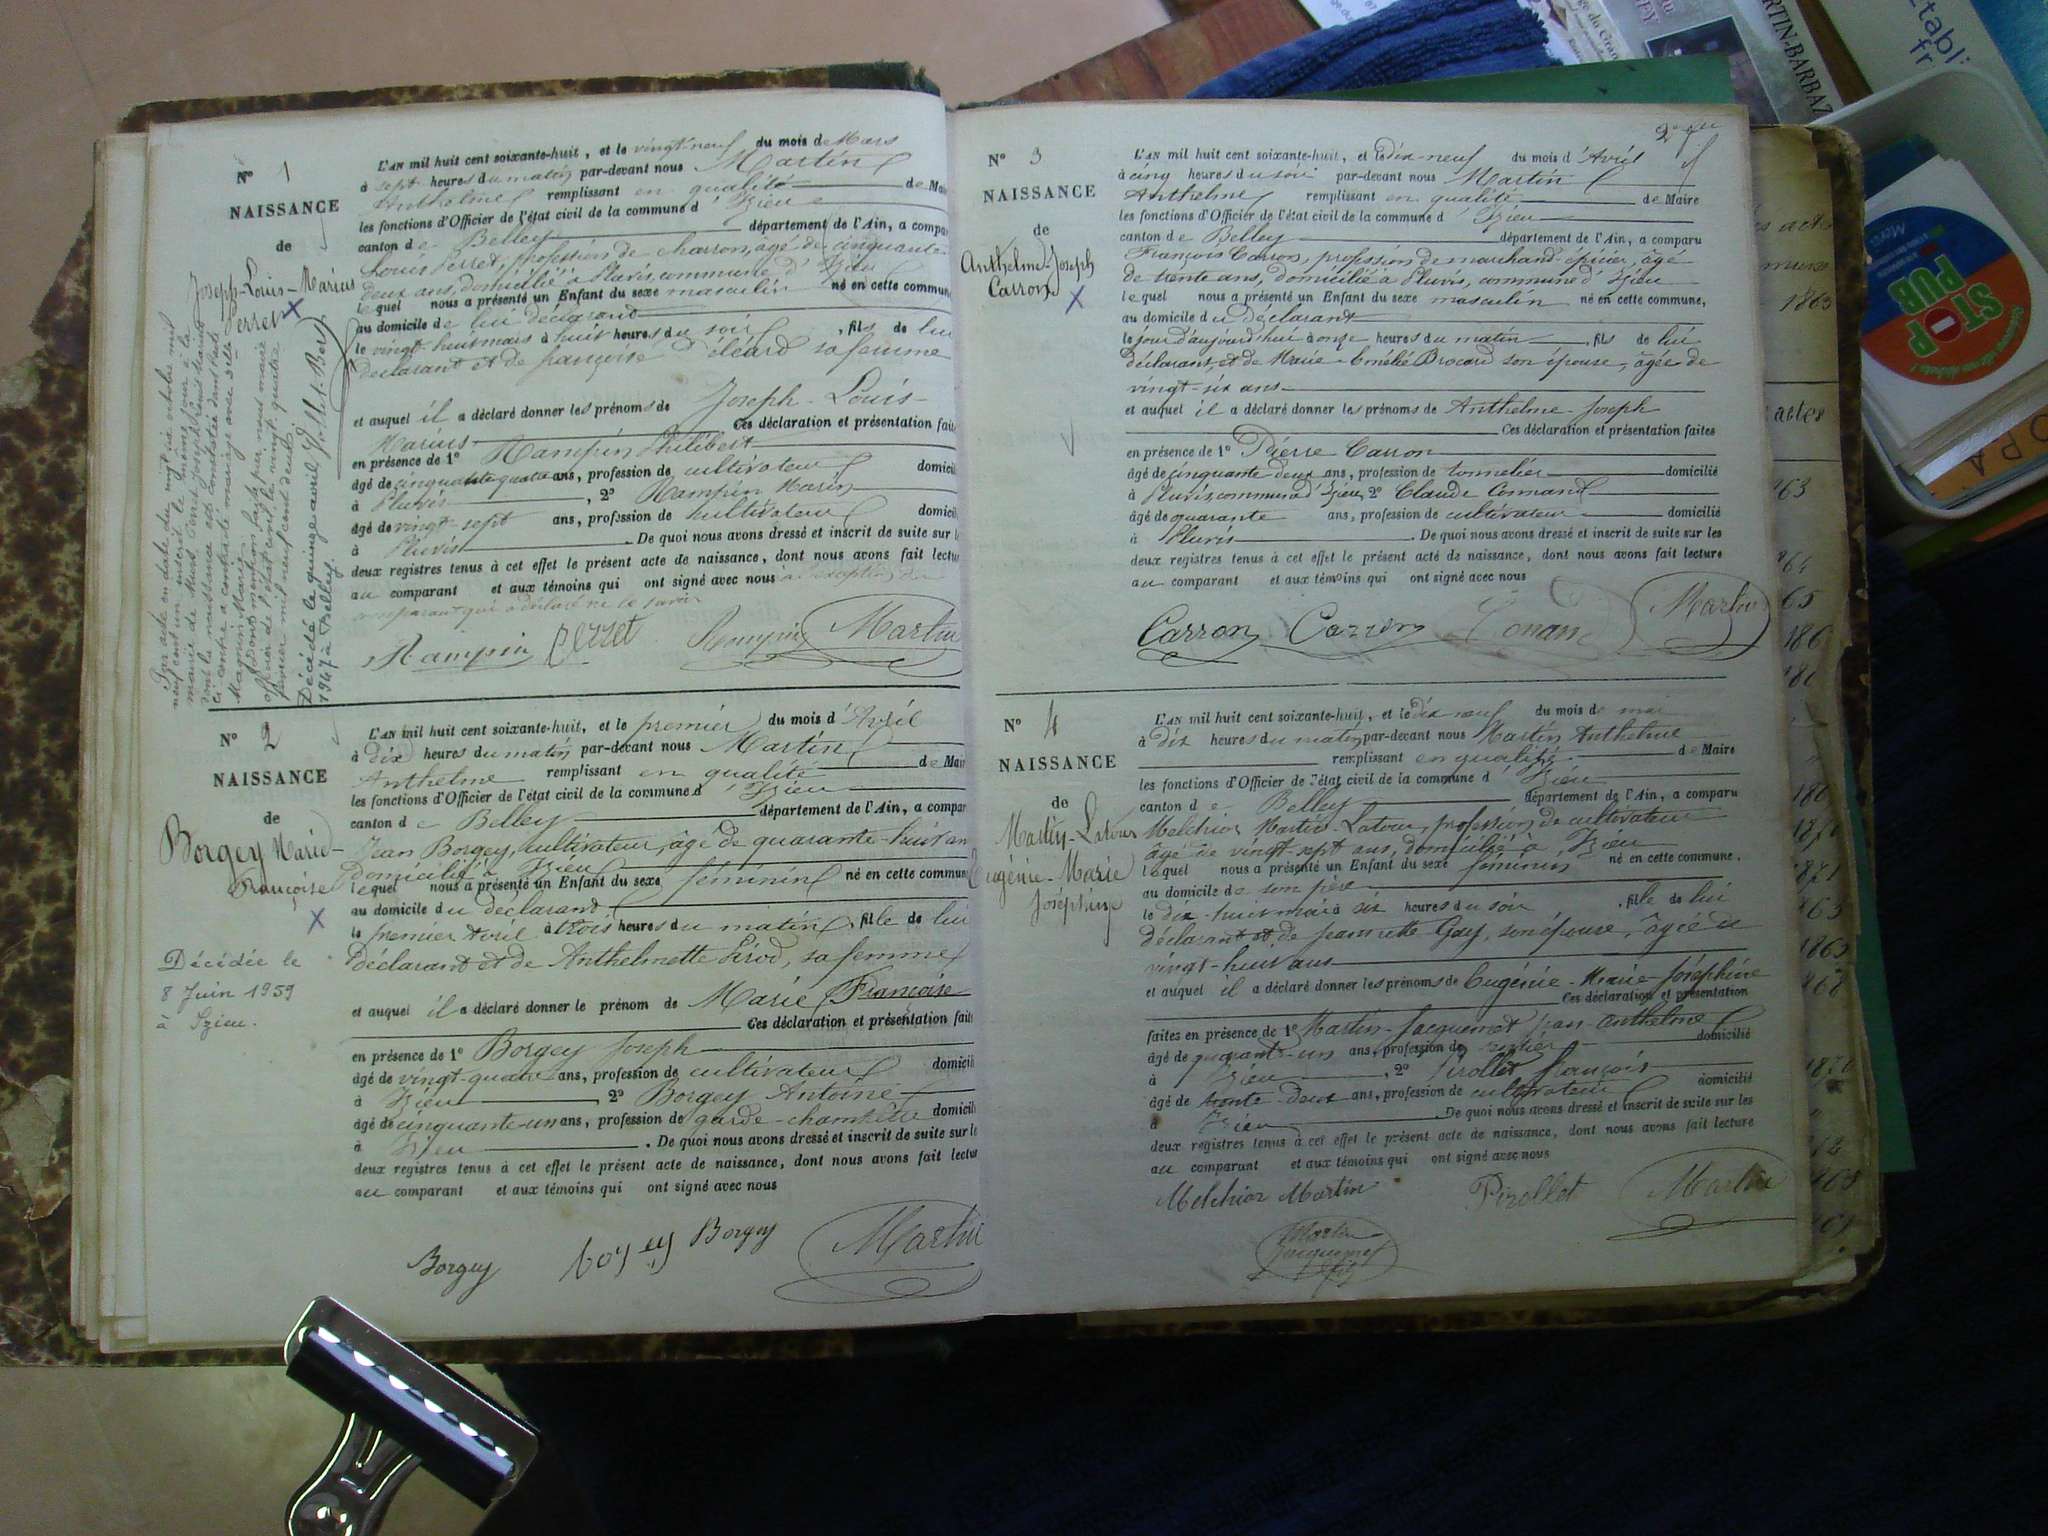 N° 1
NAISSANCE
de
Joseph-Louis-Marius
Perret
L'AN mil huit cent soixante-huit, et le vingt-neuf du mois de Mars
à sept heures du matin par-devant nous Martin
Anthelme remplissant en qualité de Mai
les fonctions d'Officier de l'état civil de la commune d'Izieu
canton de Belley département de l'Ain, a compar
Louis Perret, profession de charron, âgé de cinquante
deux ans, domicilié à Pluvis, commune d'Izieu
lequel nous a présenté un Enfant du sexe masculin né en cette commun
au domicile de lui déclarant
le vingt-huit mars à huit heures du soir, fils de lui
déclarant et de françoise sa femme
et auquel il a déclaré donner les prénoms de Joseph-Louis-
Marius Ces déclaration et présentation fait
en présence de 1° Rampin Philibert
âgé de cinquante-quatre ans, profession de cultivateur domicili
à Pluvis, 2° Rampin Marin
âgé de vingt sept ans, profession de cultivateur domicili
à Pluvis. De quoi nous avons dressé et inscrit de suite sur l
deux registres tenus à cet effet le présent acte de naissance, dont nous avons fait lectu
au comparant et aux témoins qui ont signé avec nous à l'exception du
comparant qui a déclaré ne le savoir
Rampin Perret Rampin Martin
Décédé le quinze avril
1947 à Belley.
N° 2
NAISSANCE
de
Borgey Marie-
Françoise
Décédée le
8 Juin 1959
à Izieu.
L'AN mil huit cent soixante-huit, et le premier du mois d'Avril
à dix heures du matin par-devant nous Martin
Anthelme remplissant en qualité de Mair
les fonctions d'Officier de l'état civil de la commune d'Izieu
canton de Belley département de l'Ain, a compar
Jean Borgey, cultivateur, âgé de quarante-huit an
domicilié à Izieu
lequel nous a présenté un Enfant du sexe féminin né en cette commun
au domicile du déclarant
le premier Avril à trois heures du matin, fille de lui
déclarant et de Anthelmette Pérod, sa femme
et auquel il a déclaré donner le prénom de Marie Françoise
Ces déclaration et présentation fait
en présence de 1° Borgey Joseph
âgé de vingt-quatre ans, profession de cultivateur domicili
à Izieu, 2° Borgey Antoine
âgé de cinquante-un ans, profession de garde-champêtre domicili
à Izieu. De quoi nous avons dressé et inscrit de suite sur le
deux registres tenus à cet effet le présent acte de naissance, dont nous avons fait lectu
au comparant et aux témoins qui ont signé avec nous
Borgey borgey Borgey Martin
N° 3
NAISSANCE
de
Anthelme-Joseph
Carron
L'AN mil huit cent soixante-huit, et le dix-neuf du mois d'Avril
à cinq heures du soir par-devant nous Martin
Anthelme remplissant en qualité de Maire
les fonctions d'Officier de l'état civil de la commune d'Izieu
canton de Belley département de l'Ain, a comparu
François Carron, profession de marchand-épicier, âgé
de trente ans, domicilié à Pluvis, commune d'Izieu
lequel nous a présenté un Enfant du sexe masculin né en cette commune,
au domicile du déclarant
le jour d'aujourd'hui à onze heures du matin, fils de lui
déclarant, et de Marie-Emélie Brocard son épouse, âgée de
vingt-six ans
et auquel il a déclaré donner les prénoms de Anthelme-Joseph
Ces déclaration et présentation faites
en présence de 1° Pierre Carron
âgé de cinquante-deux ans, profession de tonnelier domicilié
à Pluvis commune d'Izieu, 2° Claude Conand
âgé de quarante ans, profession de cultivateur domicilié
à Pluvis. De quoi nous avons dressé et inscrit de suite sur les
deux registres tenus à cet effet le présent acte de naissance, dont nous avons fait lecture
au comparant et aux témoins qui ont signé avec nous
Carron Carron Conan Martin
N° 4
NAISSANCE
de
Martin-Latour
Eugénie-Marie
Joséphine
L'AN mil huit cent soixante-huit, et le dix neuf du mois de mai
à dix heures du matin par-devant nous Martin Anthelme
remplissant en qualité de Maire
les fonctions d'Officier de l'état civil de la commune d'Izieu
canton de Belley département de l'Ain, a comparu
Melchior Martin-Latour, profession de cultivateur
âgé de vingt-sept ans, domicilié à Izieu
lequel nous a présenté un Enfant du sexe féminin né en cette commune.
au domicile de son père
le dix-huit mai à six heures du soir, fille de lui
déclarant et de Jeannette Gay, son épouse, âgée de
vingt-huit ans
et auquel il a déclaré donner les prénoms de Eugénie-Marie-Joséphine
Ces déclaration et présentation
faites en présence de 1° Martin-Jacquemet Jean Anthelme
âgé de quarante-un ans, profession de rentier domicilié
à Izieu, 2° Pirollet françois
âgé de trente-deux ans, profession de cultivateur domicilié
à Izieu. De quoi nous avons dressé et inscrit de suite sur les
deux registres tenus à cet effet le présent acte de naissance, dont nous avons fait lecture
au comparant et aux témoins qui ont signé avec nous
Melchior Martin Pirollet Martin
Martin
Jacquemet
actes
1863
STOP
PUB